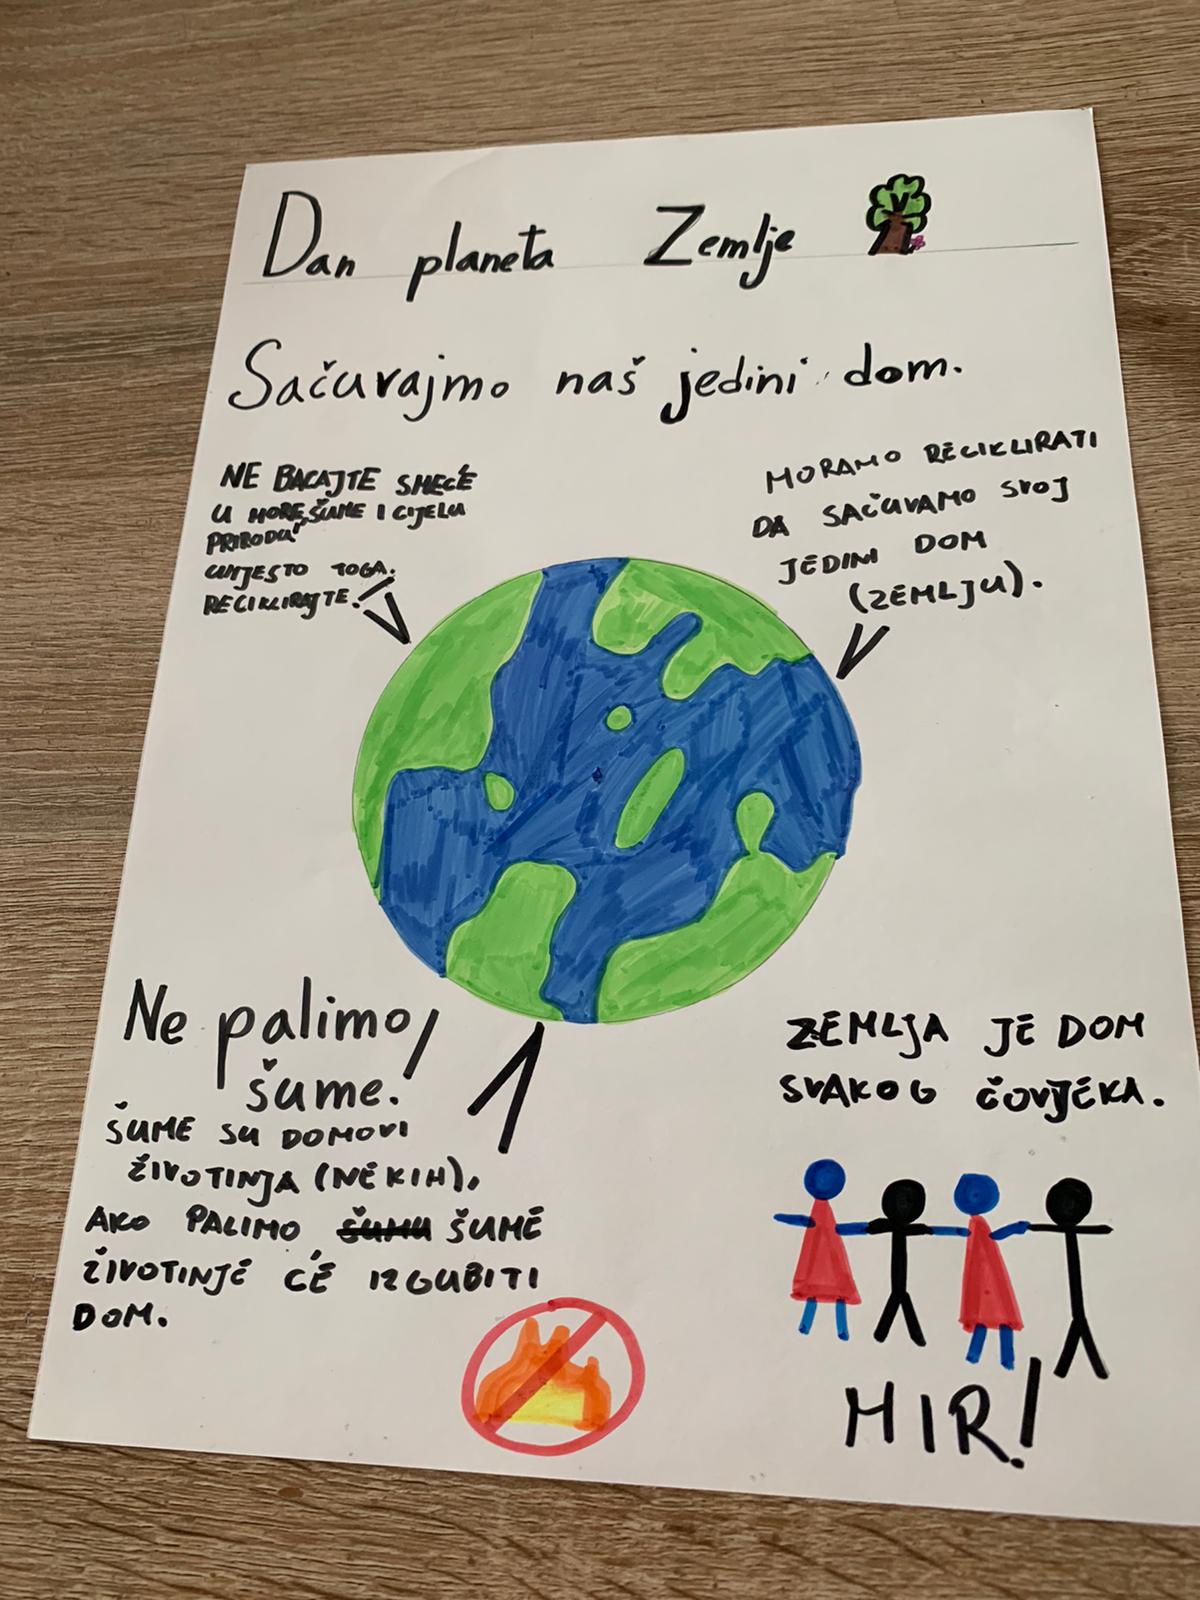 Dan planeta Zemlje
Sačuvajmo naš jedini dom.
NE BACAJTE SMEĆE
U MORE, ŠUME I CIJELU
PRIRODU
UMJESTO TOGA.
RECIKLIRAJTE.
MORAMO RECIKLIRATI
DA SAČUVAMO SVOJ
JEDINI DOM
(ZEMLJU).
Ne palimo
šume.
ŠUME SU DOMOVI
ŽIVOTINJA (NEKIH).
AKO PALIMO ŠUMU ŠUME
ŽIVOTINJE ĆE IZGUBITI
DOM.
ZEMLJA JE DOM
SVAKOG ČOVJEKA.
MIR!